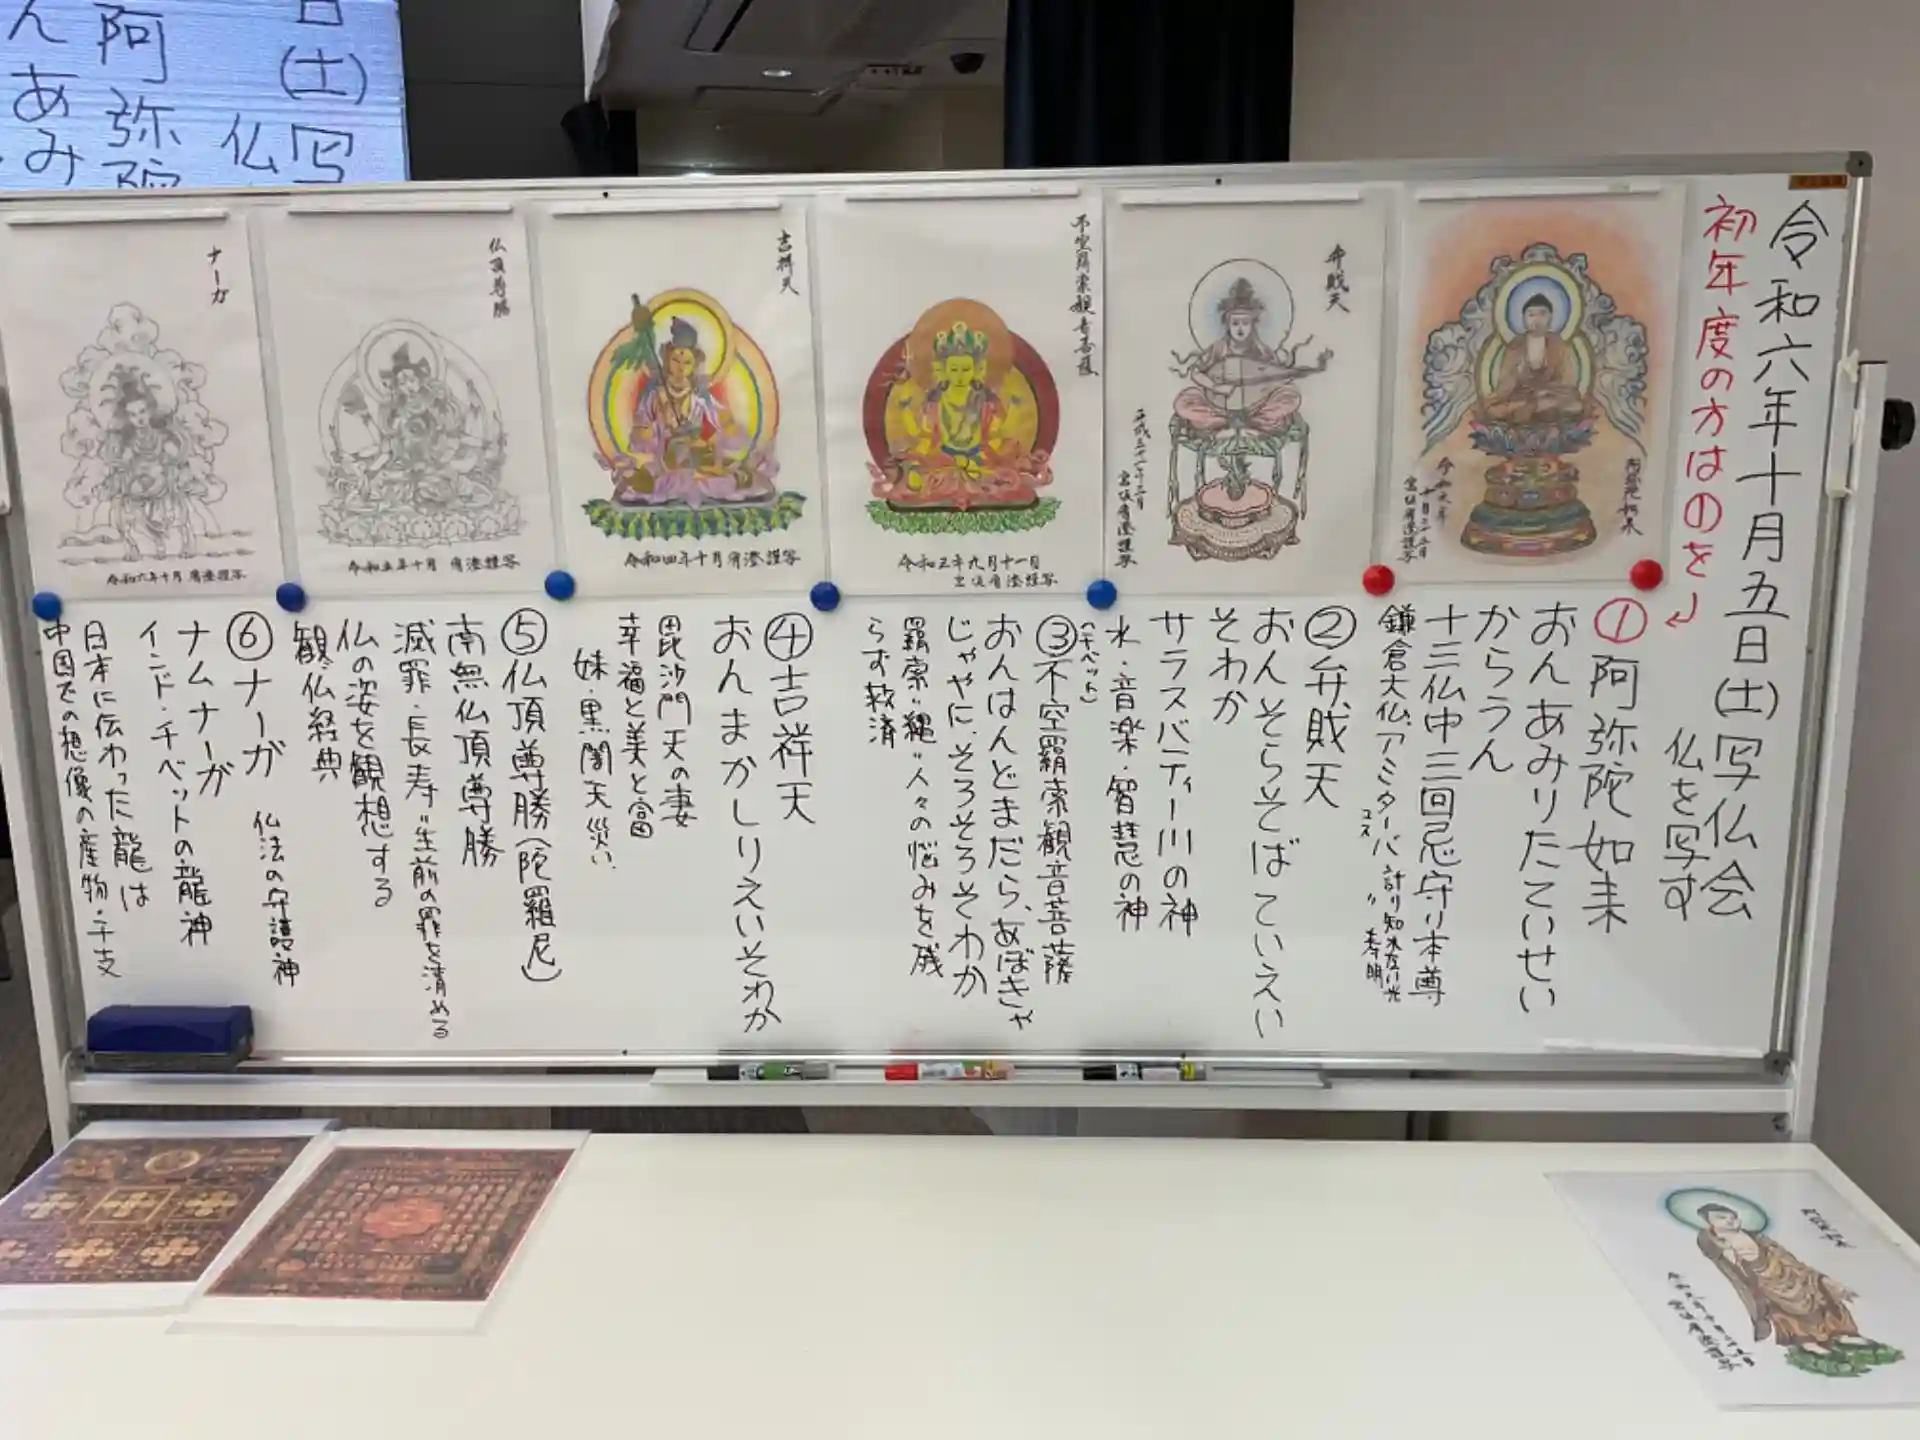 令和六年十月五日(土)写仏会
仏を写す
初年度の方は①を
①阿弥陀如来
おんあみりたていせい
からうん
十三仏中三回忌守り本尊
鎌倉大仏、アミターバ 計り知れない光
ユス 〃 寿明
②弁財天
おんそらそばていえい
そわか
サラスバティー川の神
水・音楽・智慧の神
(チベット)
③不空羂索観音菩薩
おんはんどまだら、あぼきゃ
じゃやに、そろそろそわか
羂索〃縄〃人々の悩みを残
らず救済
④吉祥天
おんまかしりえいそわか
毘沙門天の妻
幸福と美と富
妹・黒闇天 災い、
⑤仏頂尊勝(陀羅尼)
南無仏頂尊勝
滅罪・長寿〃生前の罪を清める
仏の姿を観想する
観仏経典
⑥ナーガ 仏法の守護神
ナムナーガ
インド・チベットの龍神
日本に伝わった龍は
中国での想像の産物・干支
阿弥陀如来
令和六年
弁財天
不空羂索観音菩薩
吉祥天
令和四年十月有澄謹写
仏頂尊勝
令和五年十月 有澄謹写
ナーガ
令和六年十月 有澄謹写
日
(土)写
仏
阿弥陀
んあみ